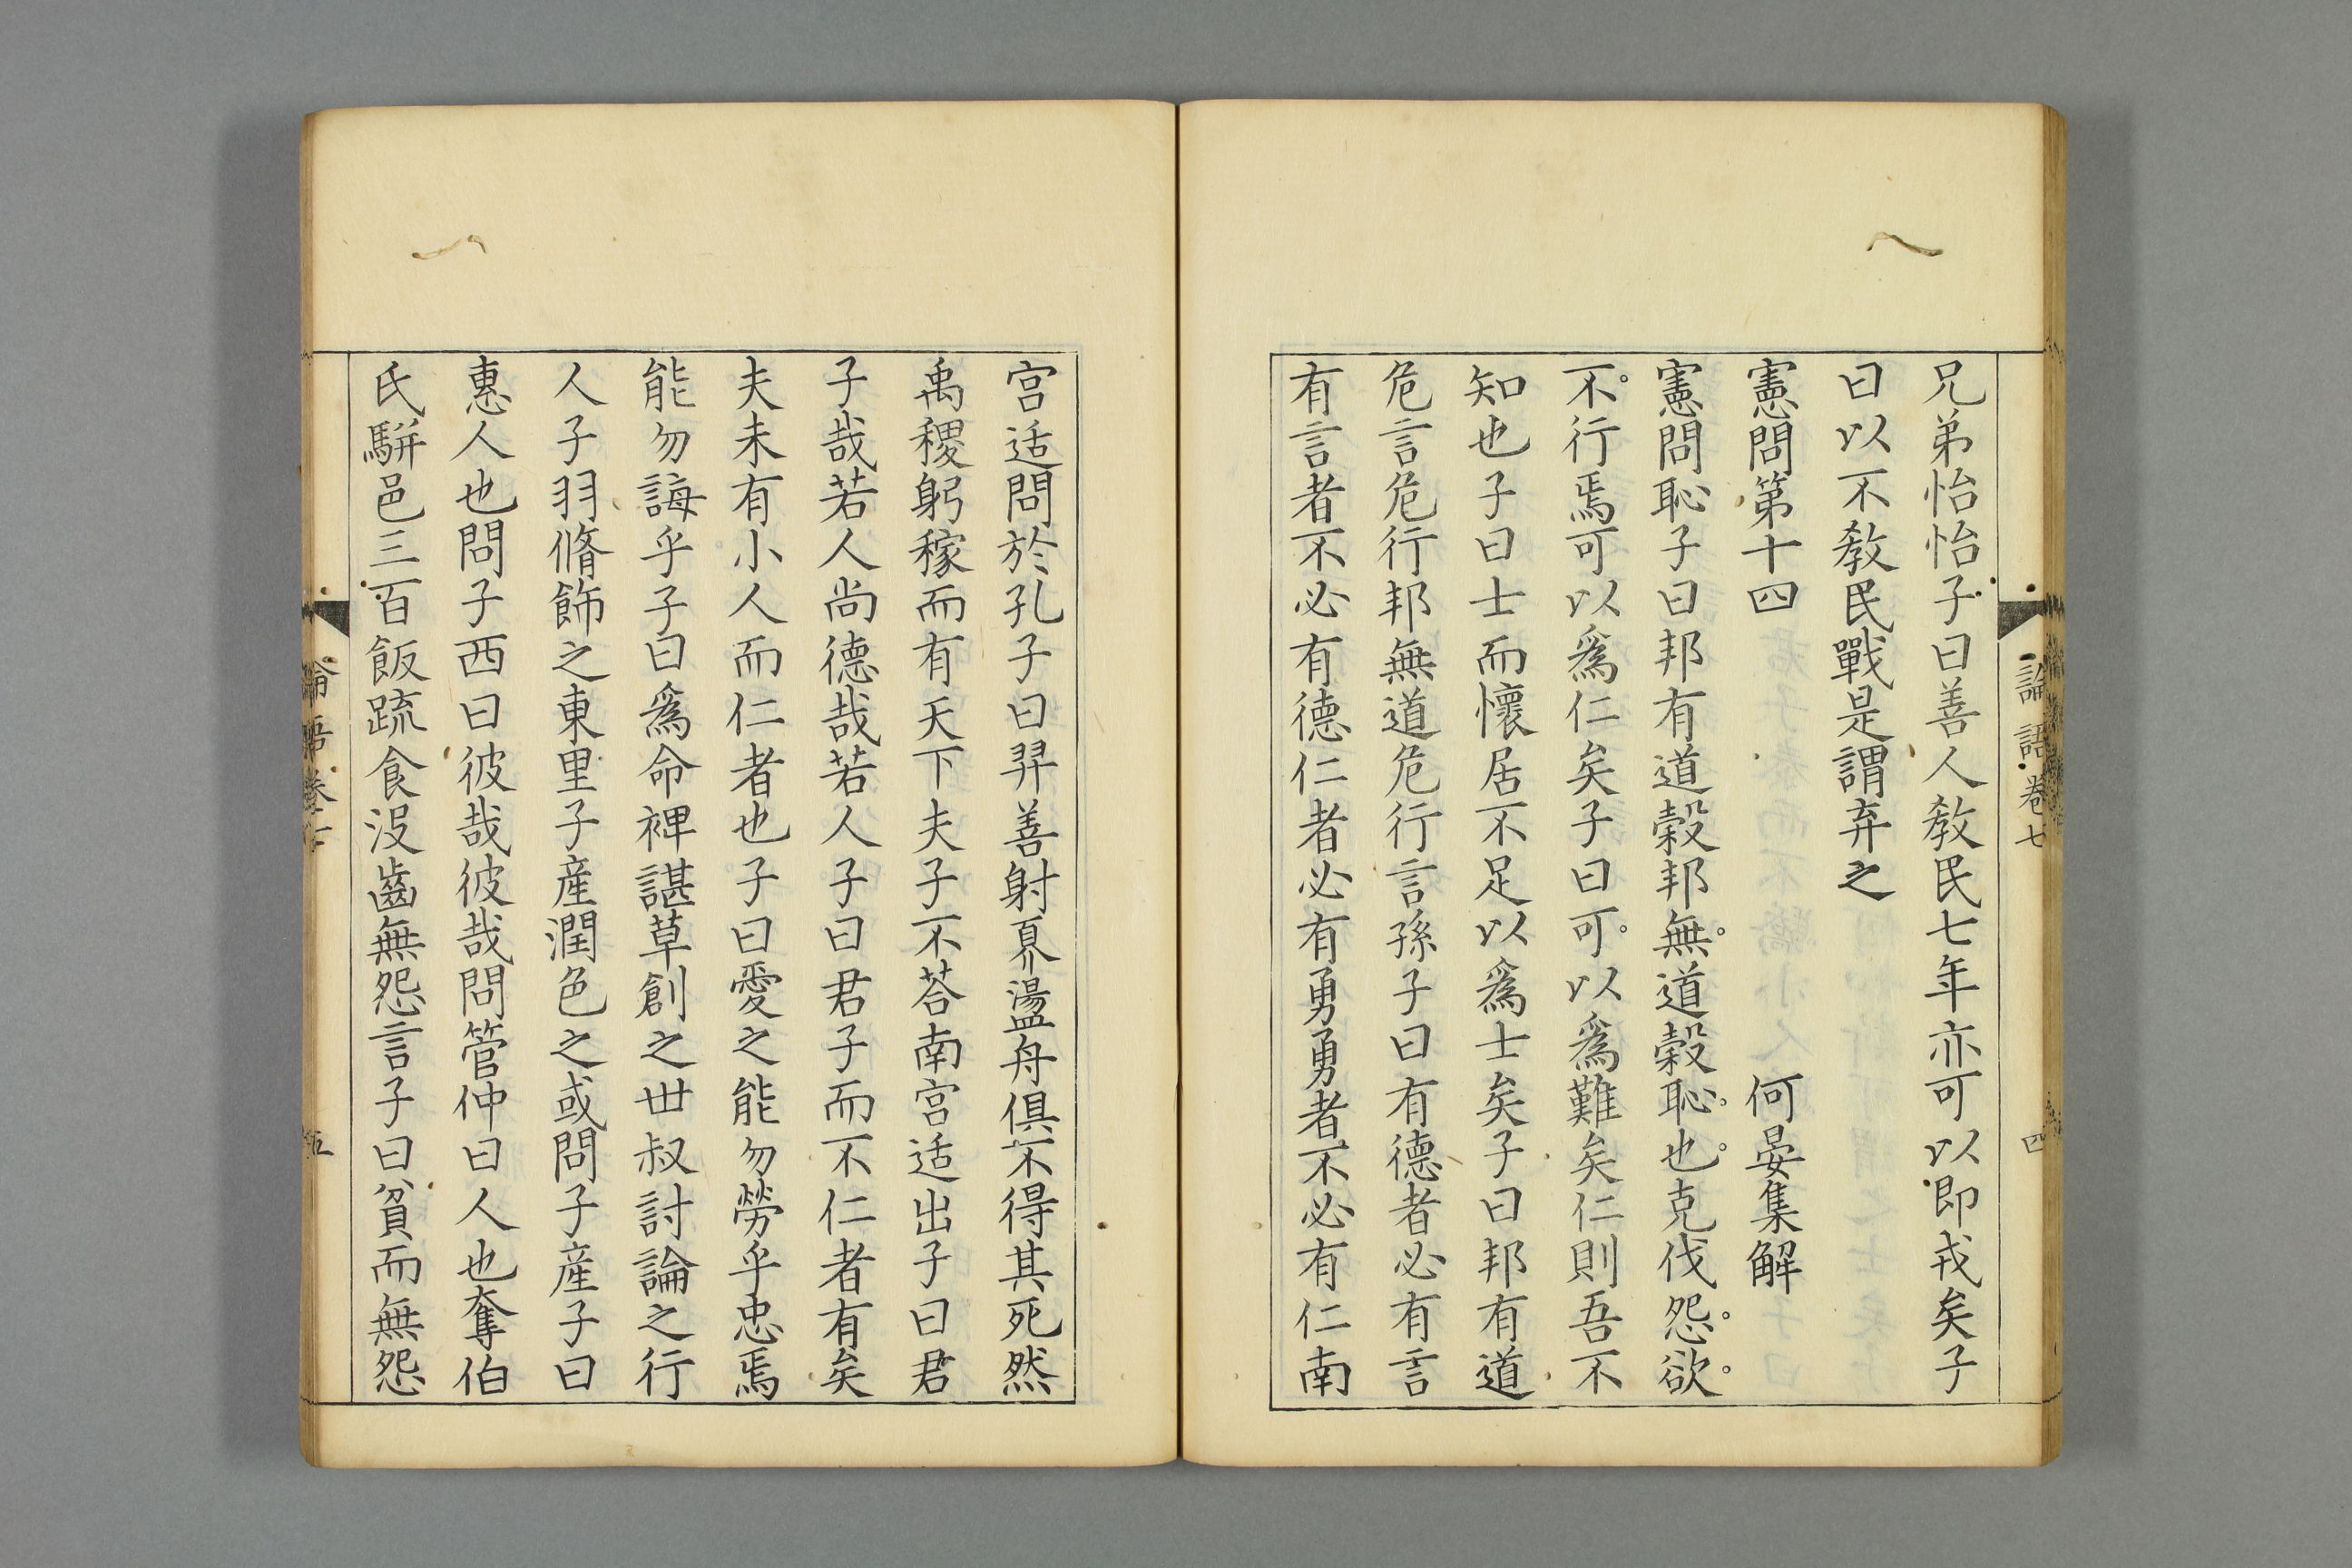 論語卷七
四
兄弟怡怡子曰善人教民七年亦可以即戎矣子
曰以不教民戰是謂弃之
憲問第十四 何晏集解
憲問恥子曰邦有道穀邦無道穀恥也克伐怨欲
不行焉可以爲仁矣子曰可以爲難矣仁則吾不
知也子曰士而懷居不足以爲士矣子曰邦有道
危言危行邦無道危行言孫子曰有德者必有言
有言者不必有德仁者必有勇勇者不必有仁南
宮适問於孔子曰羿善射奡盪舟俱不得其死然
禹稷躬稼而有天下夫子不荅南宮适出子曰君
子哉若人尚德哉若人子曰君子而不仁者有矣
夫未有小人而仁者也子曰愛之能勿勞乎忠焉
能勿誨乎子曰爲命裨諶草創之世叔討論之行
人子羽脩飾之東里子產潤色之或問子產子曰
惠人也問子西曰彼哉彼哉問管仲曰人也奪伯
氏駢邑三百飯疏食沒齒無怨言子曰貧而無怨
論語卷七
五